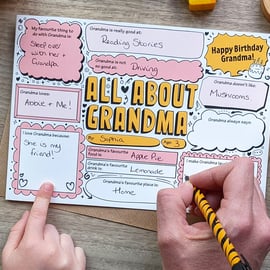 My favourite thing
to do with Grandma is:
Sleep over
with her +
Grandpa
Grandma is really good at:
Reading Stories
Grandma is not
so good at:
Driving
Happy Birthday
Grandma!
Grandma loves:
Abbie + Me!
ALL ABOUT
GRANDMA
Grandma doesn't like:
Mushrooms
Grandma always says:
I love Grandma because:
She is my
friend!
By: Sophia
Age: 3
Grandma's favourite
food is:
Apple Pie
Grandma's favourite
drink is:
Lemonade
Grandma's favourite place is:
Home